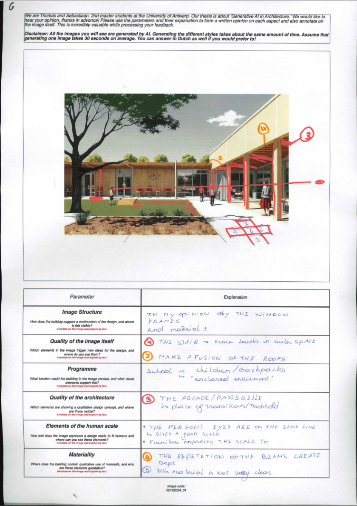 G
We are Thomas and Sebastiaan, 2nd master students at the University of Antwerp. Our thesis is about 'Generative AI in Architecture'. We would like to
hear your opinion, thanks in advance! Please use the parameters and their explanation to form a written opinion on each aspect and also annotate on
the image itself. This is incredibly valuable while processing your feedback.
Disclaimer: All the images you will see are generated by AI. Generating the different styles takes about the same amount of time. Assume that
generating one image takes 30 seconds on average. You can answer in Dutch as well if you would prefer to!
3
Parameter Explanation
Image Structure
How does the building suggest a construction of the design, and where is this visible?
In my opinion only THE WINDOW
FRAMES
And material?
Quality of the image itself
Which elements in the image trigger new ideas for the design, and
where do you see them?
THE STAIR
levels in outer space
2 MAKE A FUSION OF THE ROOFS
Programme
What function would the building in the image contain, and which visual
elements support this?
School → children / backpacks
"enclosed environment"
Quality of the architecture
Which elements are showing a qualitative design concept, and where
are these visible?
3 THE ARCADE / PASSERELLE
place of transition
Elements of the human scale
How well does the image represent a design meant to fit humans, and
where can you see these elements?
• THE PERSONS EYES ARE ON THE SAME LINE
GIVES A good SCALE
• Furniture THE SCALE TO
Materiality
Where does the building contain qualitative use of materials, and why
are these elements qualitative?
4 THE REPETETION OF THE BEAMS CREATE
Depth
5 material is Not very clear
Image code: